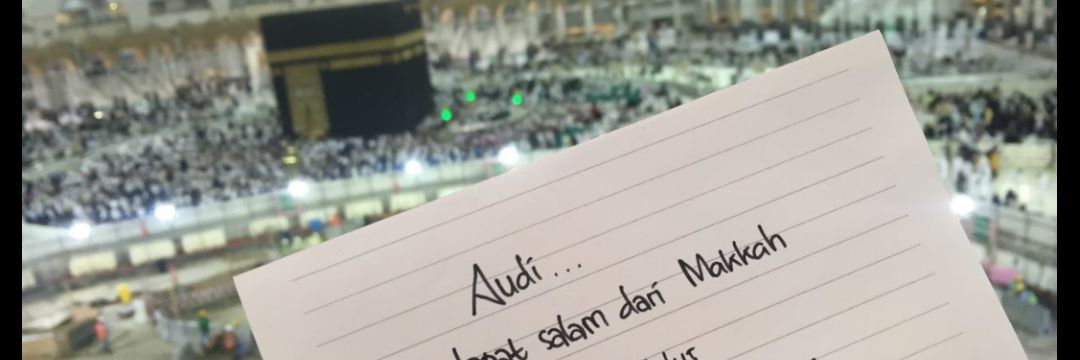 Audi...
dapat salam dari Makkah